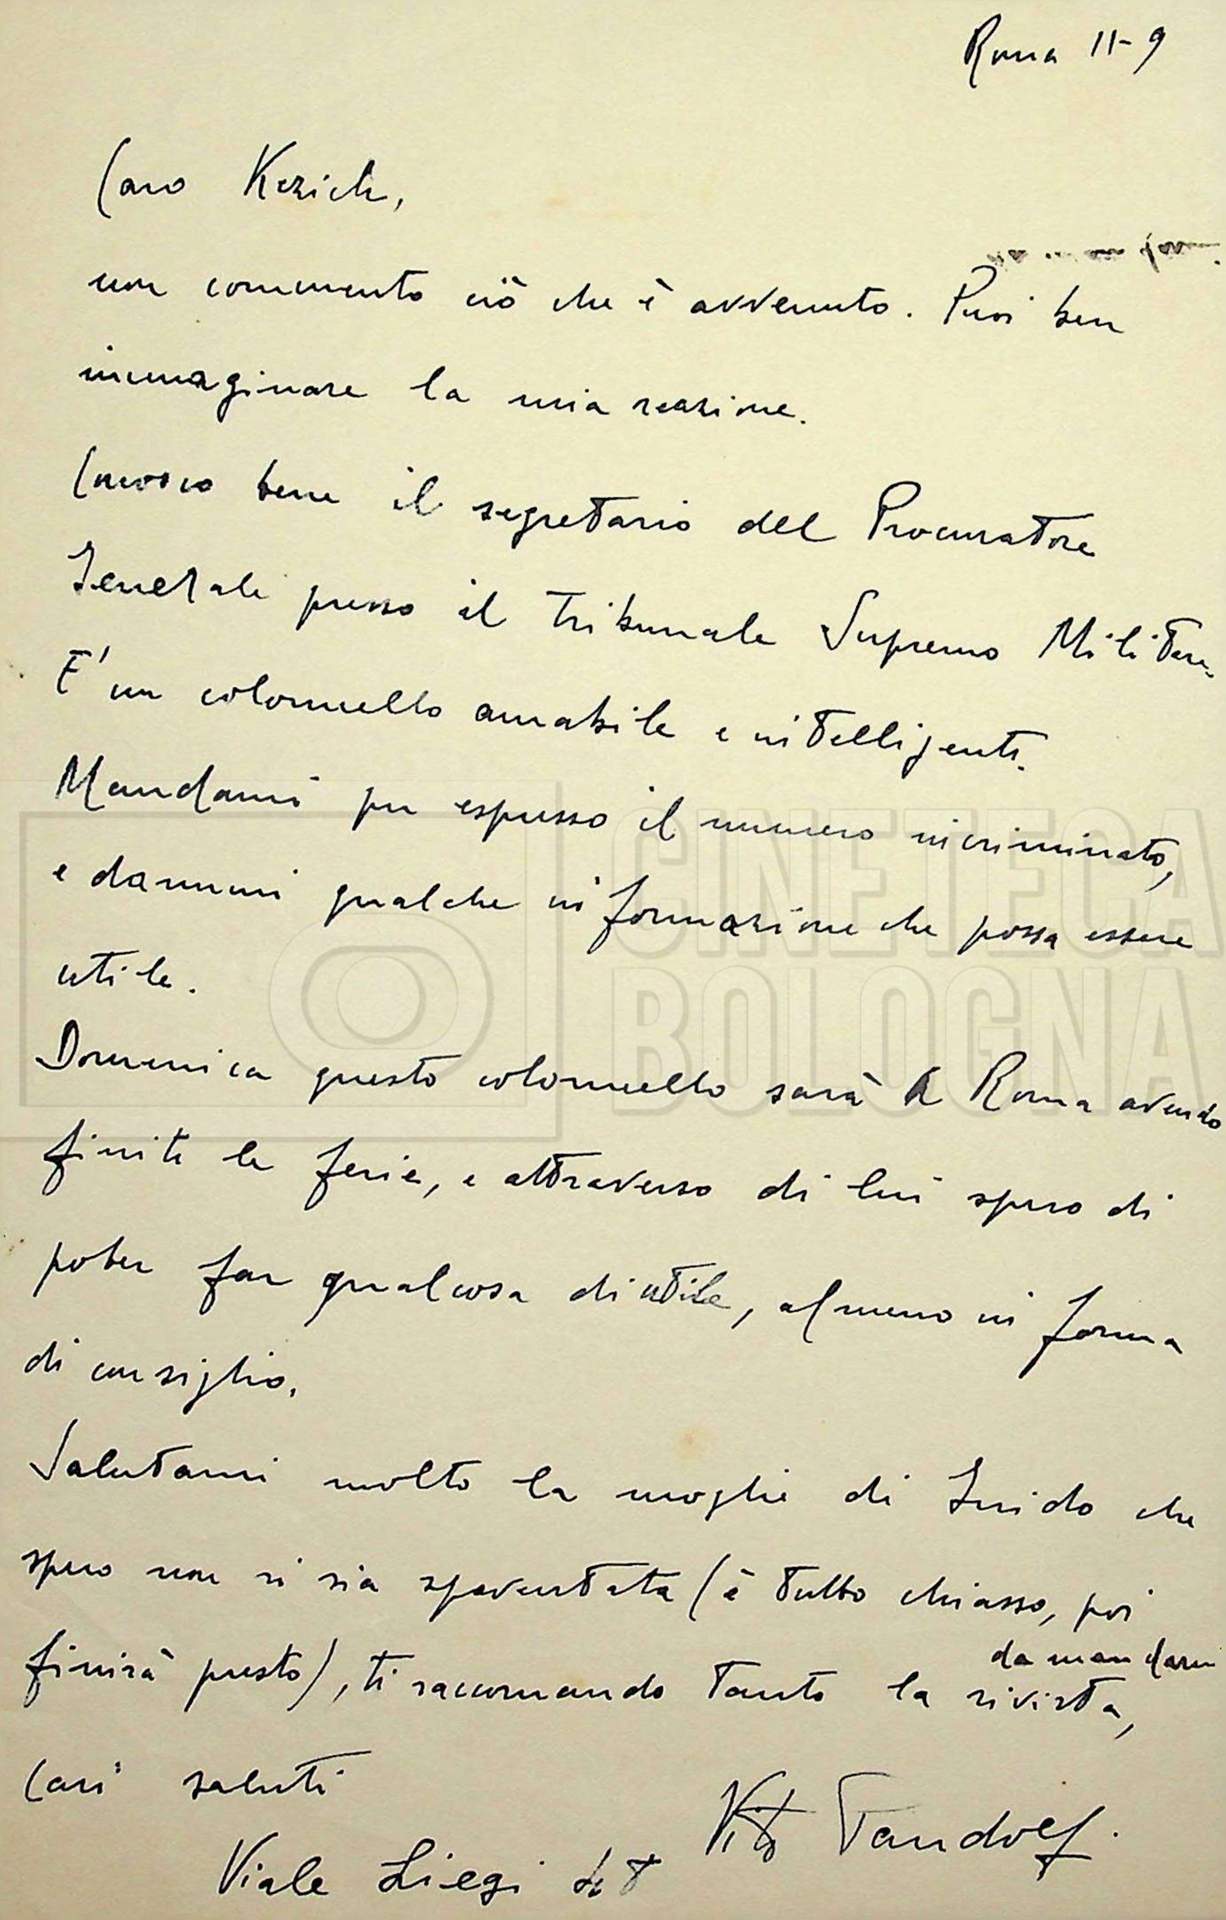 Roma 11-9
Caro Kezich,
non commento ciò che è avvenuto. Puoi ben
immaginare la mia reazione.
Conosco bene il segretario del Procuratore
Generale presso il Tribunale Supremo Militare.
E' un colonnello amabile e intelligente.
Mandami per espresso il numero incriminato,
e dammi qualche informazione che possa essere
utile.
Domenica questo colonnello sarà a Roma avendo
finite le ferie, e attraverso di lui spero di
poter far qualcosa di utile, almeno in forma
di consiglio.
Salutami molto la moglie di Guido che
spero non si sia spaventata (è tutto chiasso, poi
finirà presto), ti raccomando tanto la rivista,
da mandarmi
Cari saluti
Vito Pandolfi
Viale Liegi
CINETECA
BOLOGNA